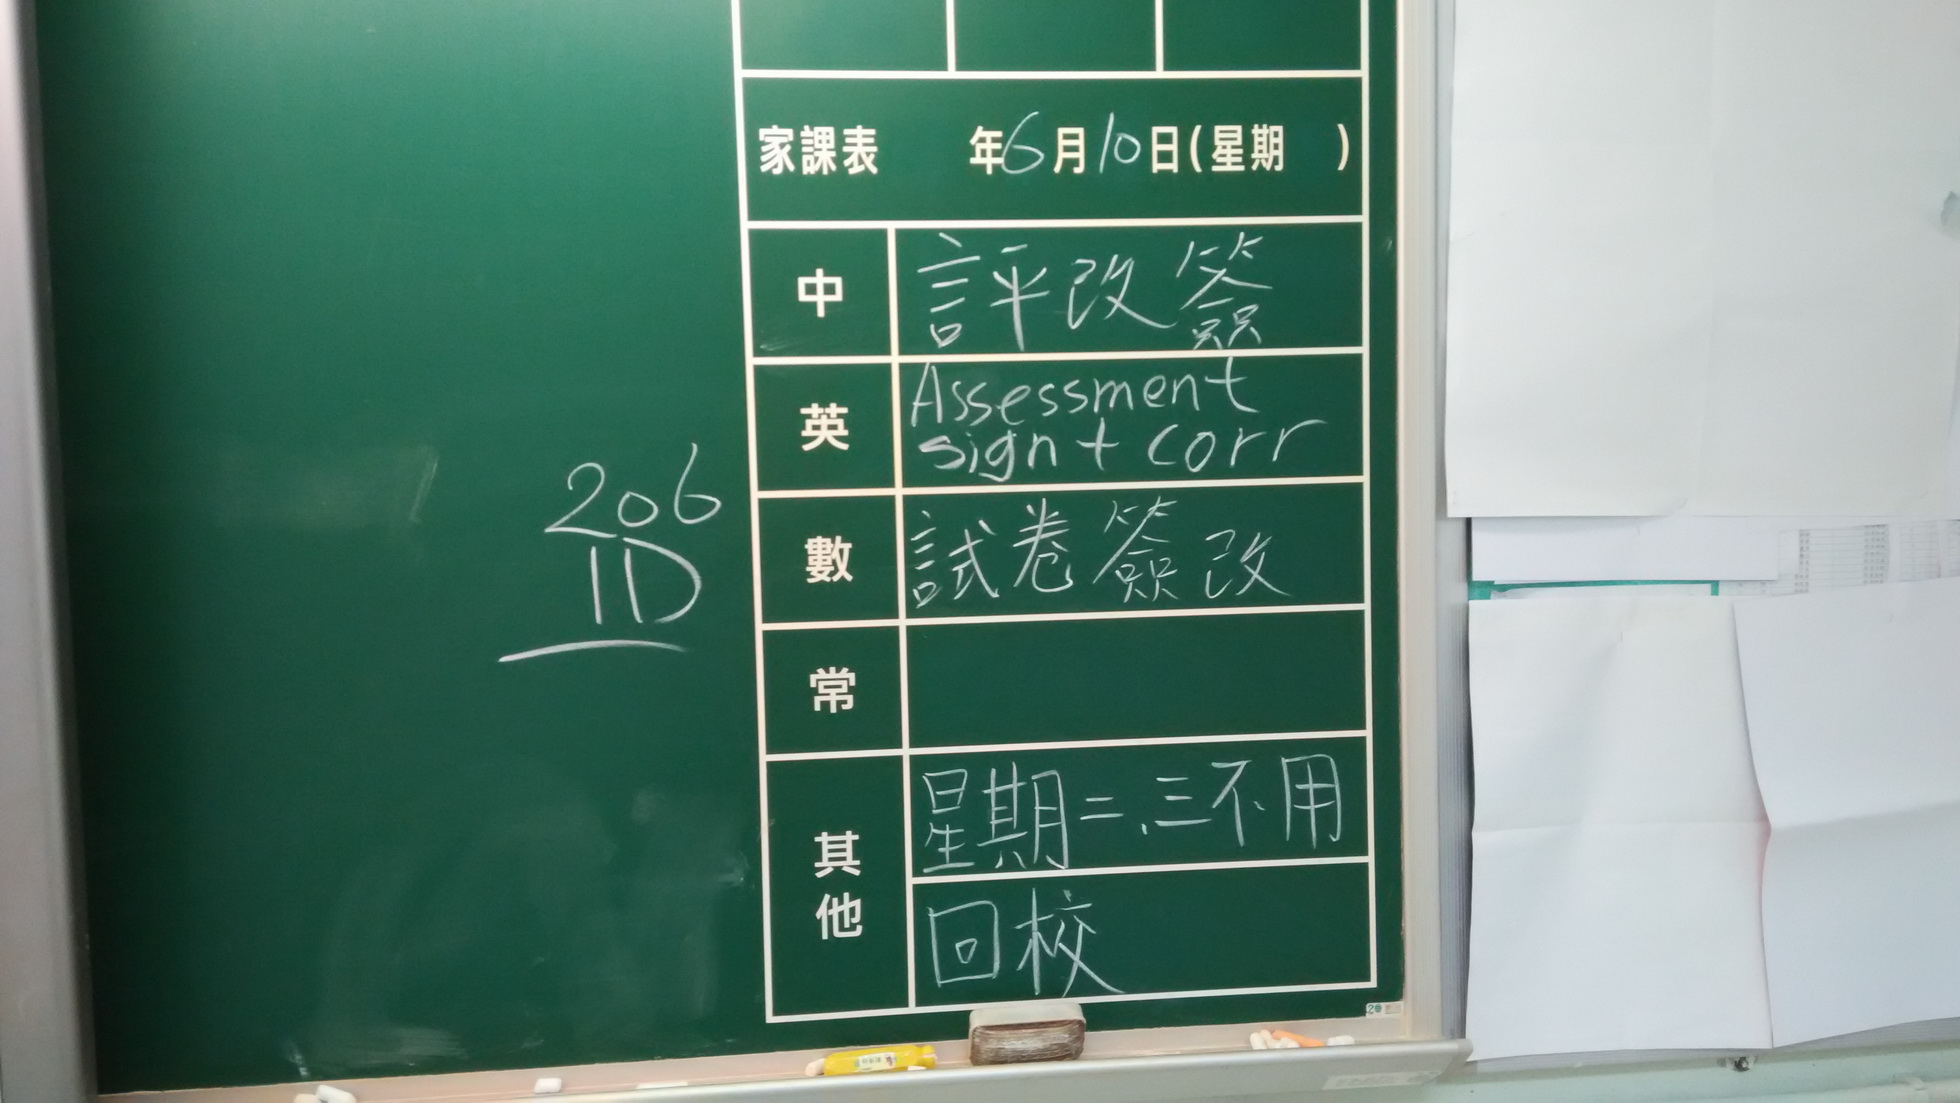 家課表 年6月10日(星期 )
中 評改簽
英 Assessment
sign + corr
206
1D
數 試卷簽改
常
其他 星期二、三不用
回校